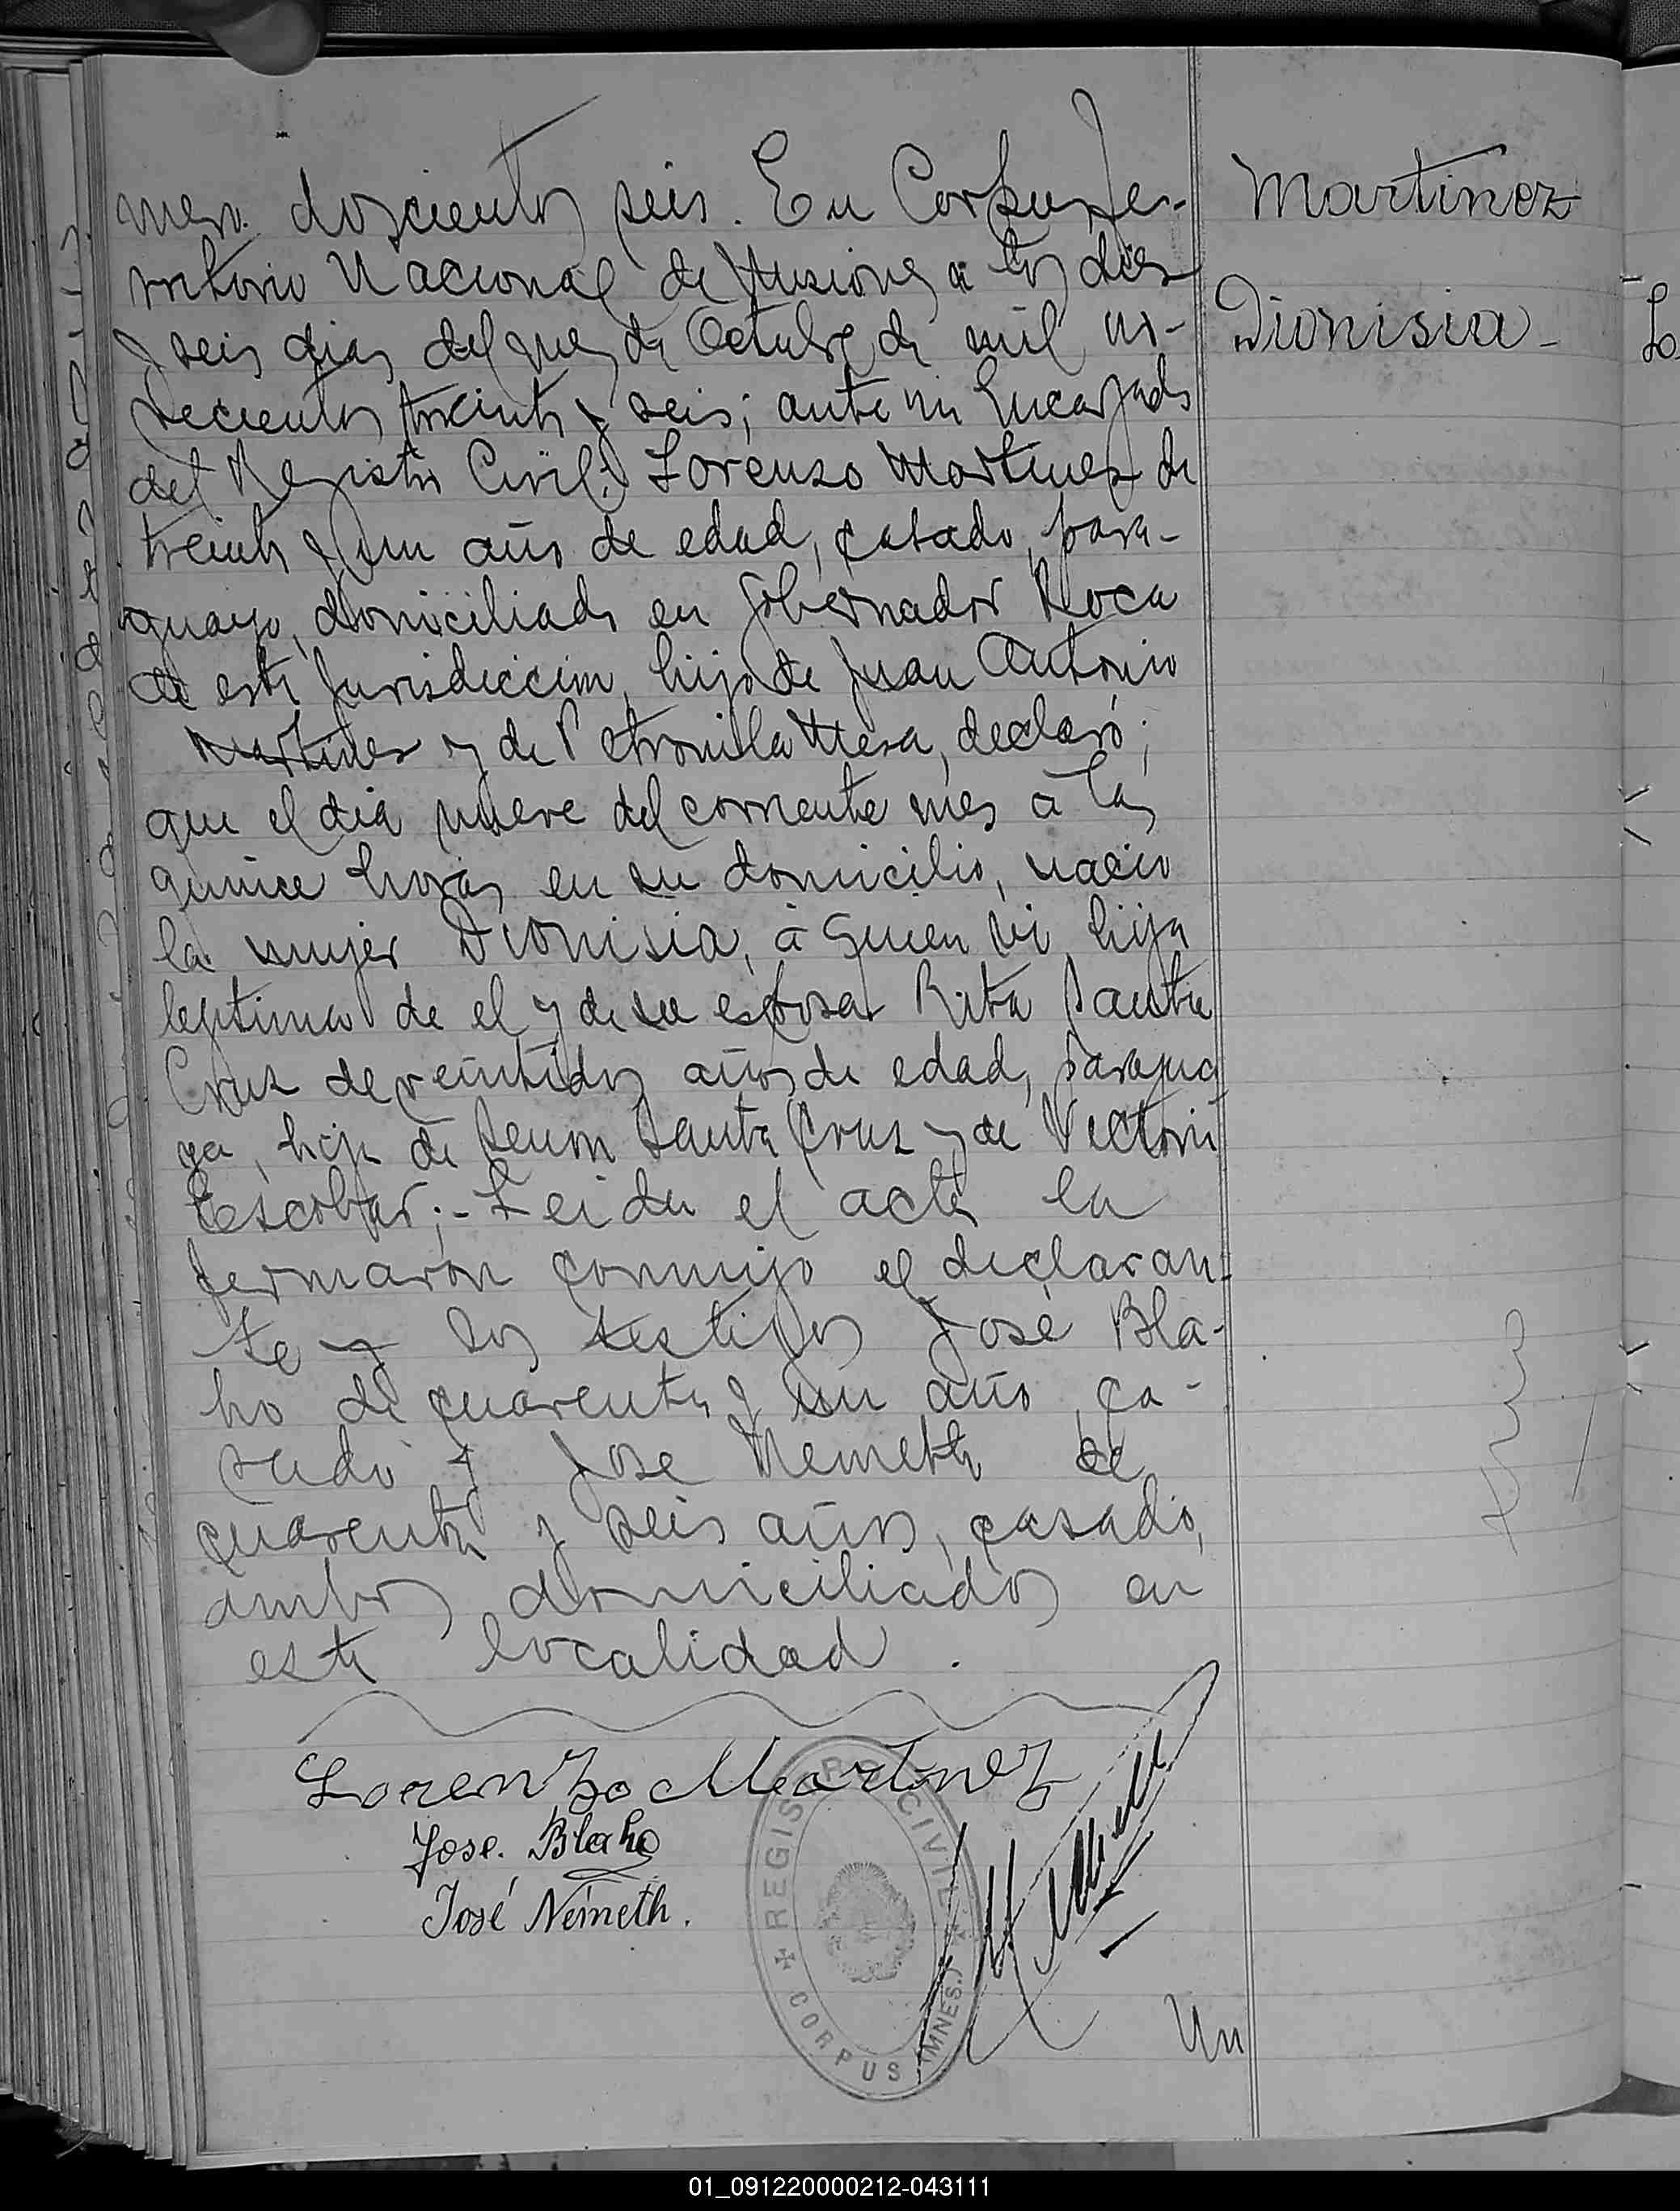 mero. doscientos seis. En Corpus, Te-
rritorio Nacional de Misiones a los dies
y seis dias del mes de Octubre de mil no-
vecientos treinta y seis; ante mi Encargado
del Registro Civil: Lorenzo Martinez de
treinta y un año de edad, casado, para-
guayo, domiciliado en Gobernador Roca
de esta Jurisdiccion, hijo de Juan Antonio
Martinez y de Petronila Mesa, declaró;
que el dia nueve del corriente mes a las
quince horas en su domicilio, nacio
la mujer Dionisia, á quien vi, hija
legitima de el y de su esposa Rita Santa
Cruz de veintidos años de edad, paragua
ya, hija de Santa Cruz y de Victoria
Escobar;- Leida el acta la
firmaron conmigo el declaran-
te y los testigos José Bla-
ho de cuarenta y un año, ca-
sado y Jose Nemeth de
cuarenta y seis años, casado,
ambos domiciliados en
esta localidad.
Lorenzo Martinez
Jose. Blaho
José Németh.
Un
Martinez
Dionisia-
Lo
REGISTRO CIVIL
CORPUS (MNES.)
01_091220000212-043111